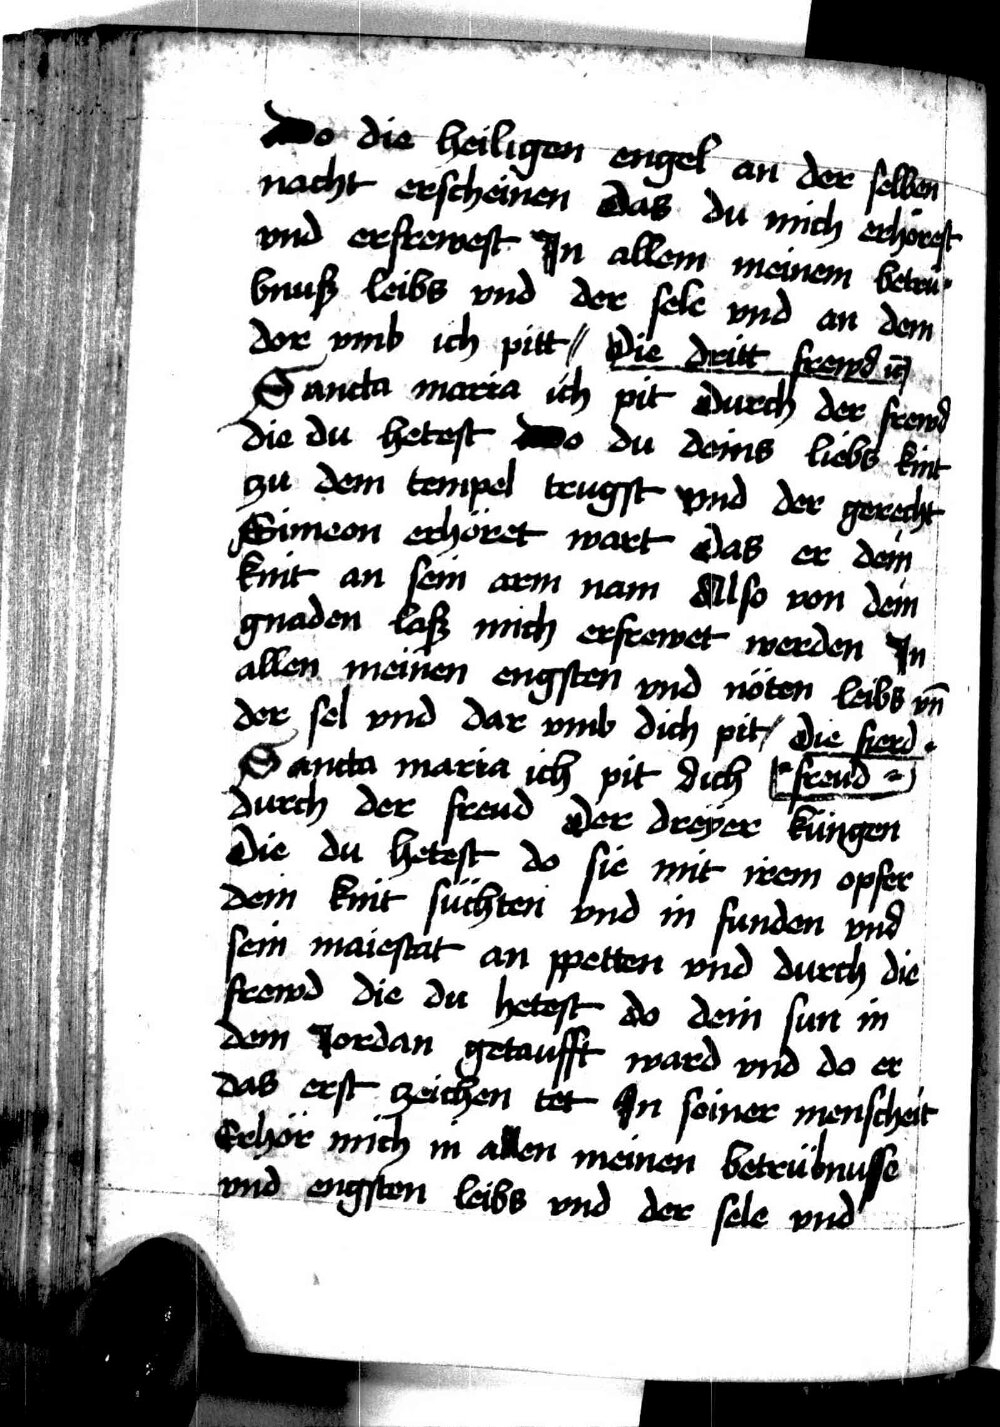 Do die heiligen engel an der selben
nacht erscheinen Das du mich erhörest
vnd erfrewest In allem meinem betrü-
bnuß leibs vnd der sele vnd an dem
dor vmb ich pitt // Die dritt frewd
Sancta maria ich pit durch der frewd
die du hetest Do du deins liebs kint
zu dem tempel trugst vnd der gerecht
Simeon erhöret wart Das er dein
kint an sein arm nam Also von dein
gnaden laß mich erfrewet werden In
allen meinen engsten vnd nöten leibs vn̄
der sel vnd dar vmb dich pit / Die fierd
Sancta maria ich pit dich freud
durch der freud Der dreyer küngen
Die du hetest do sie mit irem opfer
dein kint süchten vnd in funden vnd
sein maiestat an ppetten vnd durch die
frewd die du hetest do dein sun in
dem Jordan getaufft ward vnd do er
das erst zeichen tet In seiner menscheit
Erhör mich in allen meinen betrübnusse
vnd engsten leibs vnd der sele vnd